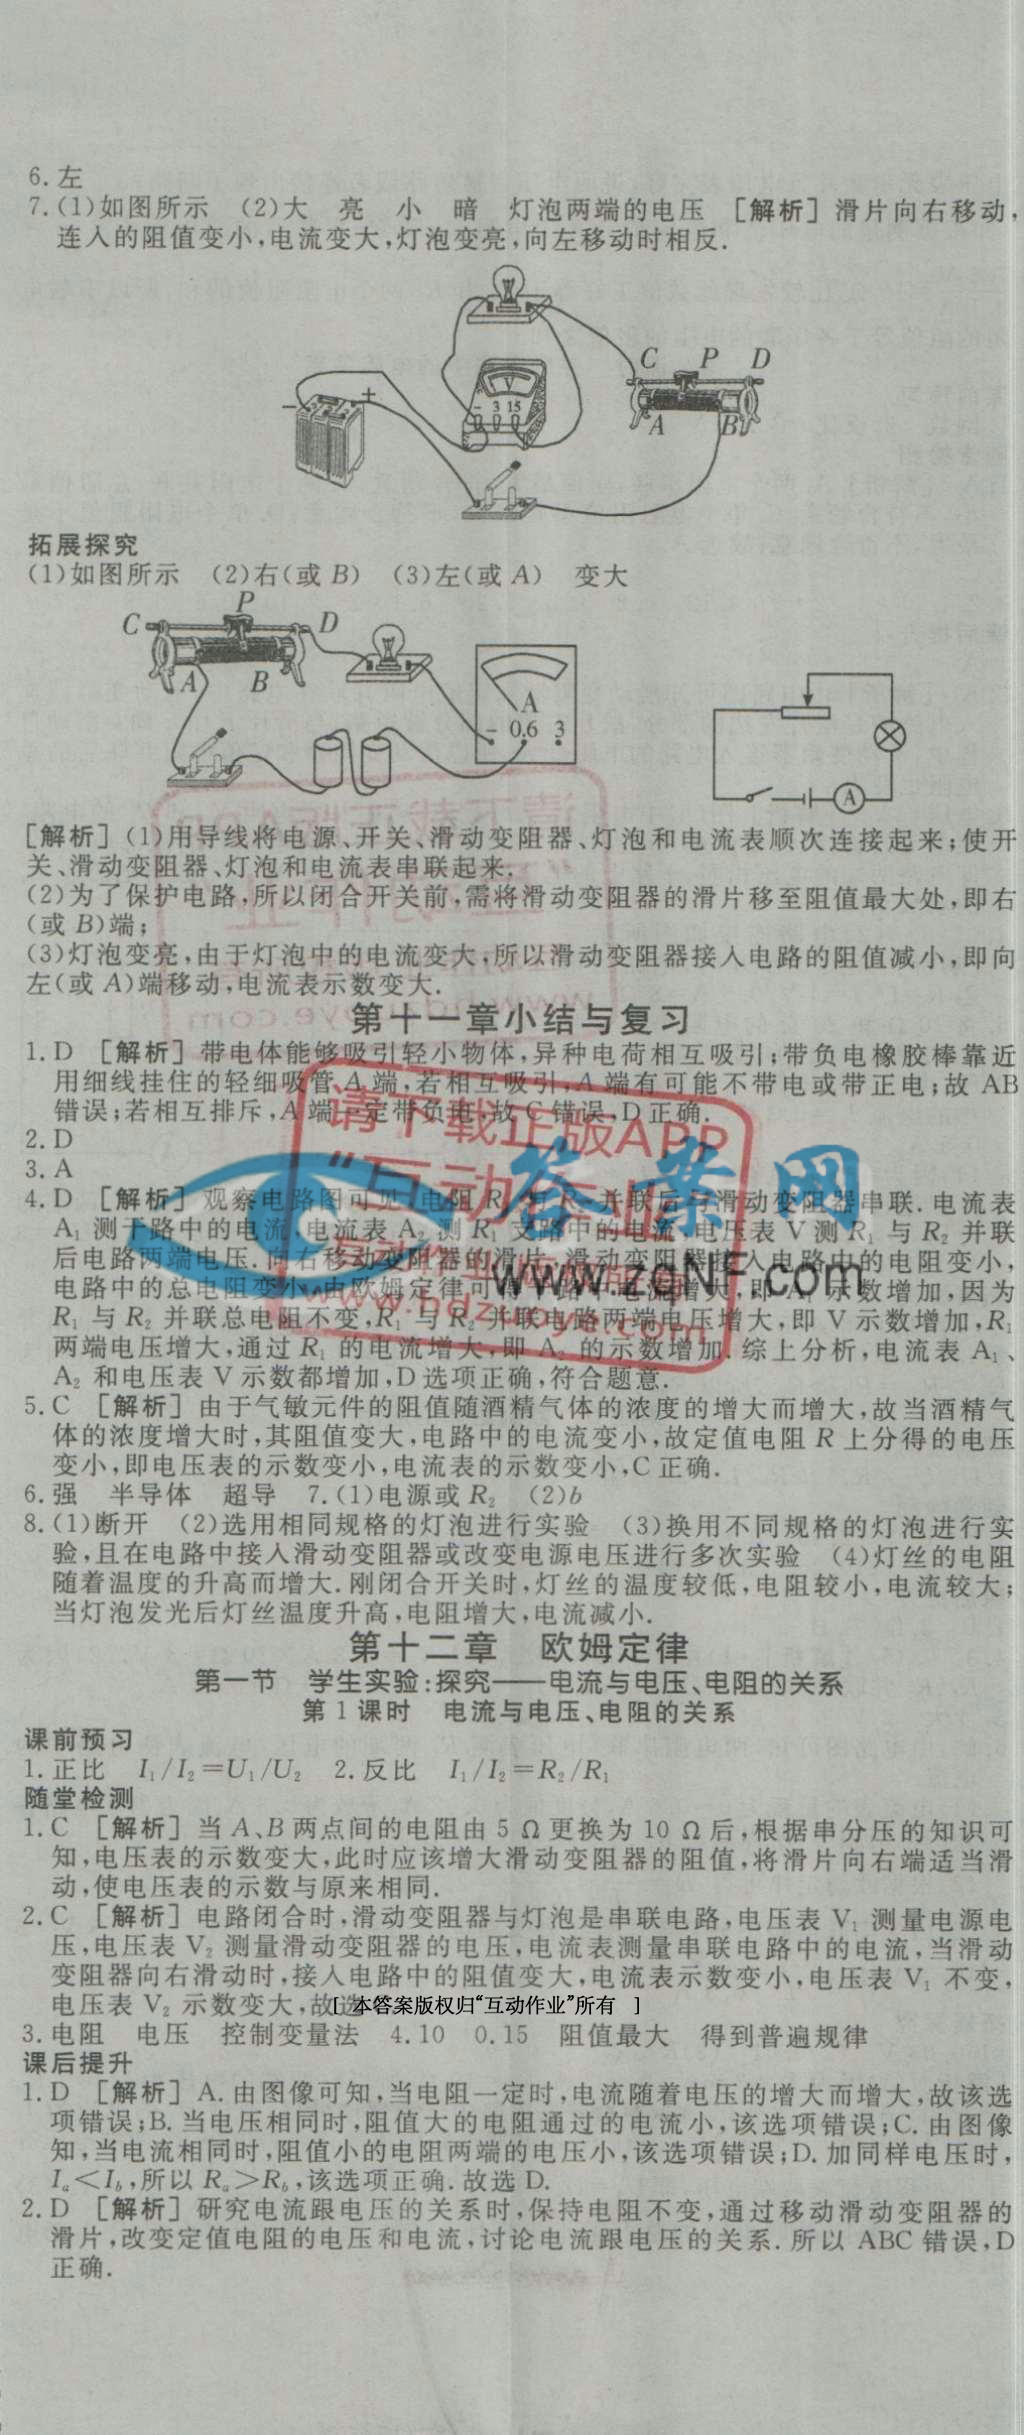 6.左
7.(1)如图所示 (2)大 亮 小 暗 灯泡两端的电压 [解析]滑片向右移动,
连入的阻值变小,电流变大,灯泡变亮,向左移动时相反.
C P D
V
- +
- 3 15
A B
拓展探究
(1)如图所示 (2)右(或 B) (3)左(或 A) 变大
P
C D
A B
A
- 0.6 3
A
[解析](1)用导线将电源、开关、滑动变阻器、灯泡和电流表顺次连接起来;使开
关、滑动变阻器、灯泡和电流表串联起来.
(2)为了保护电路,所以闭合开关前,需将滑动变阻器的滑片移至阻值最大处,即右
(或 B)端;
(3)灯泡变亮,由于灯泡中的电流变大,所以滑动变阻器接入电路的阻值减小,即向
左(或 A)端移动,电流表示数变大.
第十一章小结与复习
1.D [解析]带电体能够吸引轻小物体,异种电荷相互吸引;带负电橡胶棒靠近
用细线挂住的轻细吸管 A 端,若相互吸引,A 端有可能不带电或带正电;故 AB
错误;若相互排斥,A 端一定带负电,故 C 错误,D 正确.
2.D
3.A
4.D [解析]观察电路图可见,电阻 R 与 R 并联后与滑动变阻器串联.电流表
A₁ 测干路中的电流,电流表 A₂ 测 R₁ 支路中的电流,电压表 V 测 R₁ 与 R₂ 并联
后电路两端电压.向右移动变阻器的滑片,滑动变阻器接入电路中的电阻变小,
电路中的总电阻变小,由欧姆定律可 路中电流增大,即 A₁ 示数增加,因为
R₁ 与 R₂ 并联总电阻不变,R₁ 与 R₂ 并联电路两端电压增大,即 V 示数增加,R₁
两端电压增大,通过 R₁ 的电流增大,即 A₂ 的示数增加.综上分析,电流表 A₁、
A₂ 和电压表 V 示数都增加,D 选项正确,符合题意.
5.C [解析]由于气敏元件的阻值随酒精气体的浓度的增大而增大,故当酒精气
体的浓度增大时,其阻值变大,电路中的电流变小,故定值电阻 R 上分得的电压
变小,即电压表的示数变小,电流表的示数变小,C 正确.
6.强 半导体 超导 7.(1)电源或 R₂ (2)b
8.(1)断开 (2)选用相同规格的灯泡进行实验 (3)换用不同规格的灯泡进行实
验,且在电路中接入滑动变阻器或改变电源电压进行多次实验 (4)灯丝的电阻
随着温度的升高而增大.刚闭合开关时,灯丝的温度较低,电阻较小,电流较大;
当灯泡发光后灯丝温度升高,电阻增大,电流减小.
请下载正版APP
“互动作业”
www.hdzuoye.com
答案网
www.zqNF.com
第十二章 欧姆定律
第一节 学生实验:探究——电流与电压、电阻的关系
第 1 课时 电流与电压、电阻的关系
课前预习
1.正比 I₁/I₂=U₁/U₂ 2.反比 I₁/I₂=R₂/R₁
随堂检测
1.C [解析]当 A、B 两点间的电阻由 5 Ω 更换为 10 Ω 后,根据串分压的知识可
知,电压表的示数变大,此时应该增大滑动变阻器的阻值,将滑片向右端适当滑
动,使电压表的示数与原来相同.
2.C [解析]电路闭合时,滑动变阻器与灯泡是串联电路,电压表 V₁ 测量电源电
压,电压表 V₂ 测量滑动变阻器的电压,电流表测量串联电路中的电流,当滑动
变阻器向右滑动时,接入电路中的阻值变大,电流表示数变小,电压表 V₁ 不变,
电压表 V₂ 示数变大,故选
[ 本答案版权归“互动作业”所有 ]
3.电阻 电压 控制变量法 4.10 0.15 阻值最大 得到普遍规律
课后提升
1.D [解析]A.由图像可知,当电阻一定时,电流随着电压的增大而增大,故该选
项错误;B.当电压相同时,阻值大的电阻通过的电流小,该选项错误;C.由图像
知,当电流相同时,阻值小的电阻两端的电压小,该选项错误;D.加同样电压时,
Iₐ<I_b,所以 Rₐ>R_b,该选项正确.故选 D.
2.D [解析]研究电流跟电压的关系时,保持电阻不变,通过移动滑动变阻器的
滑片,改变定值电阻的电压和电流,讨论电流跟电压的关系.所以 ABC 错误,D
正确.